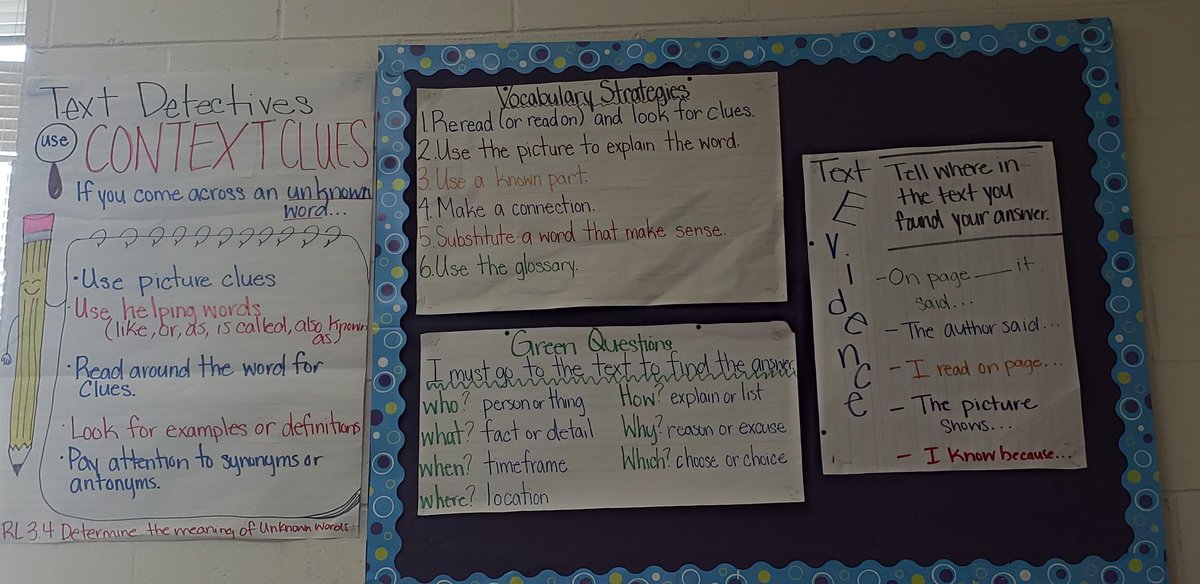 Text Detectives
use
CONTEXT CLUES
If you come across an unknown
word...
·Use picture clues
·Use helping words
(like, or, as, is called, also known
as)
·Read around the word for
clues.
·Look for examples or definitions
·Pay attention to synonyms or
antonyms.
RL 3.4 Determine the meaning of unknown words
Vocabulary Strategies
1. Reread (or read on) and look for clues.
2. Use the picture to explain the word.
3. Use a known part.
4. Make a connection.
5. Substitute a word that make sense.
6. Use the glossary.
Green Questions
I must go to the text to find the answer.
who? person or thing
what? fact or detail
when? timeframe
where? location
How? explain or list
Why? reason or excuse
Which? choose or choice
Text
Evidence
Tell where in
the text you
found your answer.
-On page ___ it
said...
- The author said...
- I read on page...
- The picture
shows...
- I know because...